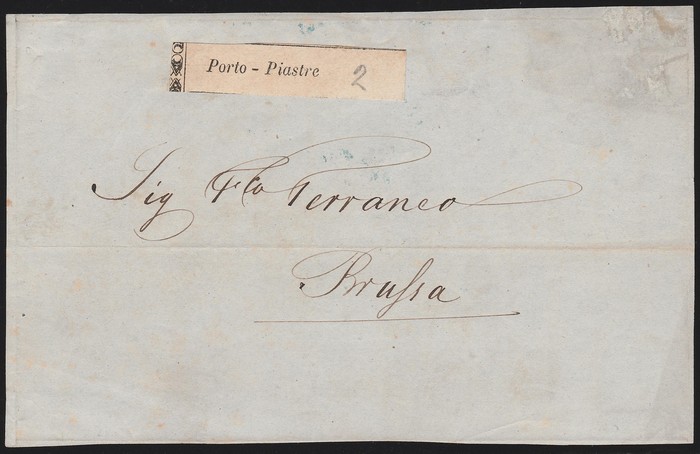 Porto - Piastre 2
Sig Flo Terraneo
Brussa